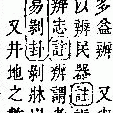 多益辨 又
以辨民器 註
辨志 註 辨謂
易剝卦剝牀
又井地之數